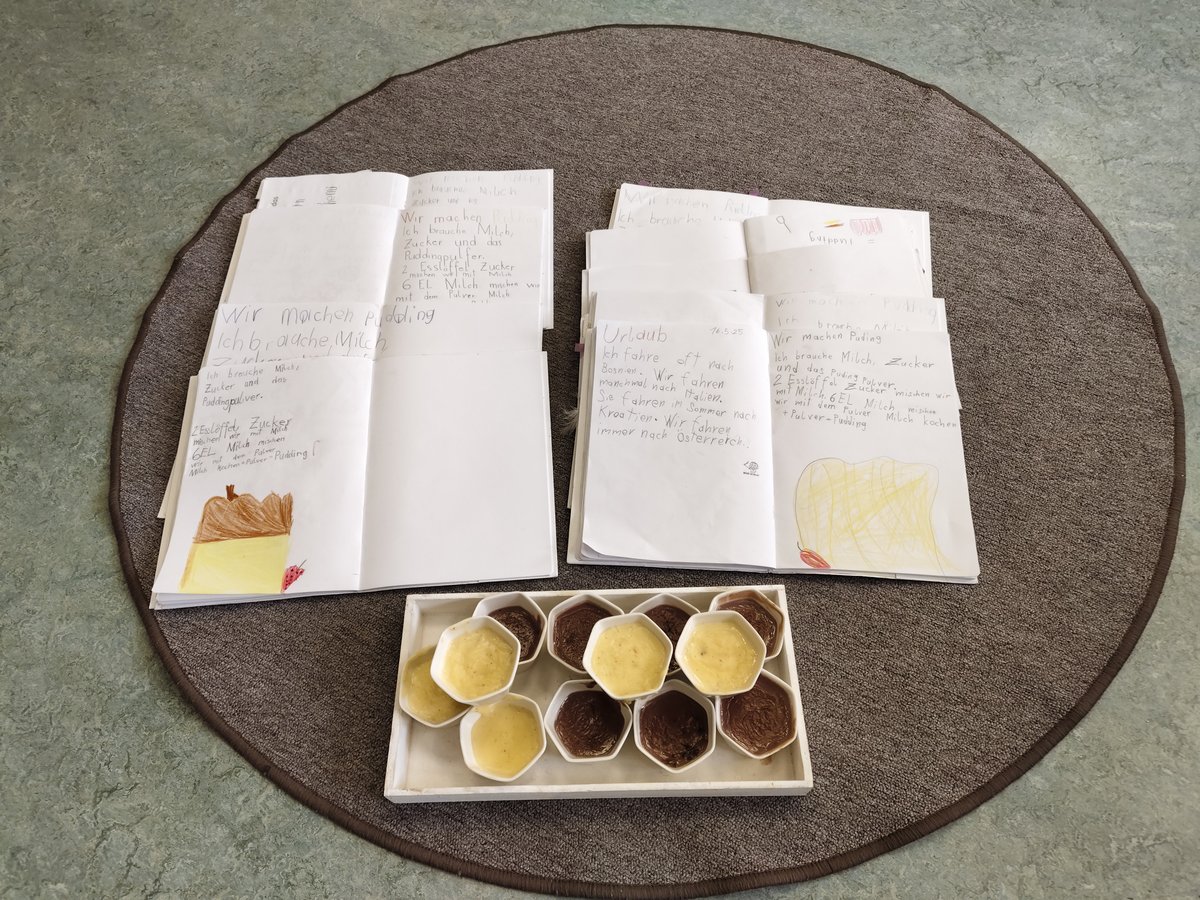 Ich brauche Milch
Zucker und das
Wir machen Pudding
Ich brauche Milch,
Zucker und das
Puddingpulfer.
2 Esslöffel Zucker
mischen wir mit Milch
6 EL Milch mischen wir
mit dem Pulver Milch
Wir machen Pudding
Ich brauche, Milch
Zucker
Ich brauche Milch,
Zucker und das
Puddingpulver.
2 Esslöffel Zucker
mischen wir mit Milch
6EL Milch mischen
wir mit dem Pulver
Milch kochen+Pulver=Pudding
Wir machen
Ich brauche
Wir machen Pudding
Urlaub 16.5.25
Ich fahre oft nach
Bosnien. Wir fahren
manchmal nach Italien.
Sie fahren im Sommer nach
Kroatien. Wir fahren
immer nach Österreich.
Wir machen Puding
Ich brauche Milch, Zucker
und das Puding Pulver.
2 Esslöffel Zucker mischen wir
mit Milch. 6EL Milch mischen
wir mit dem Pulver Milch kochen
+Pulver=Pudding